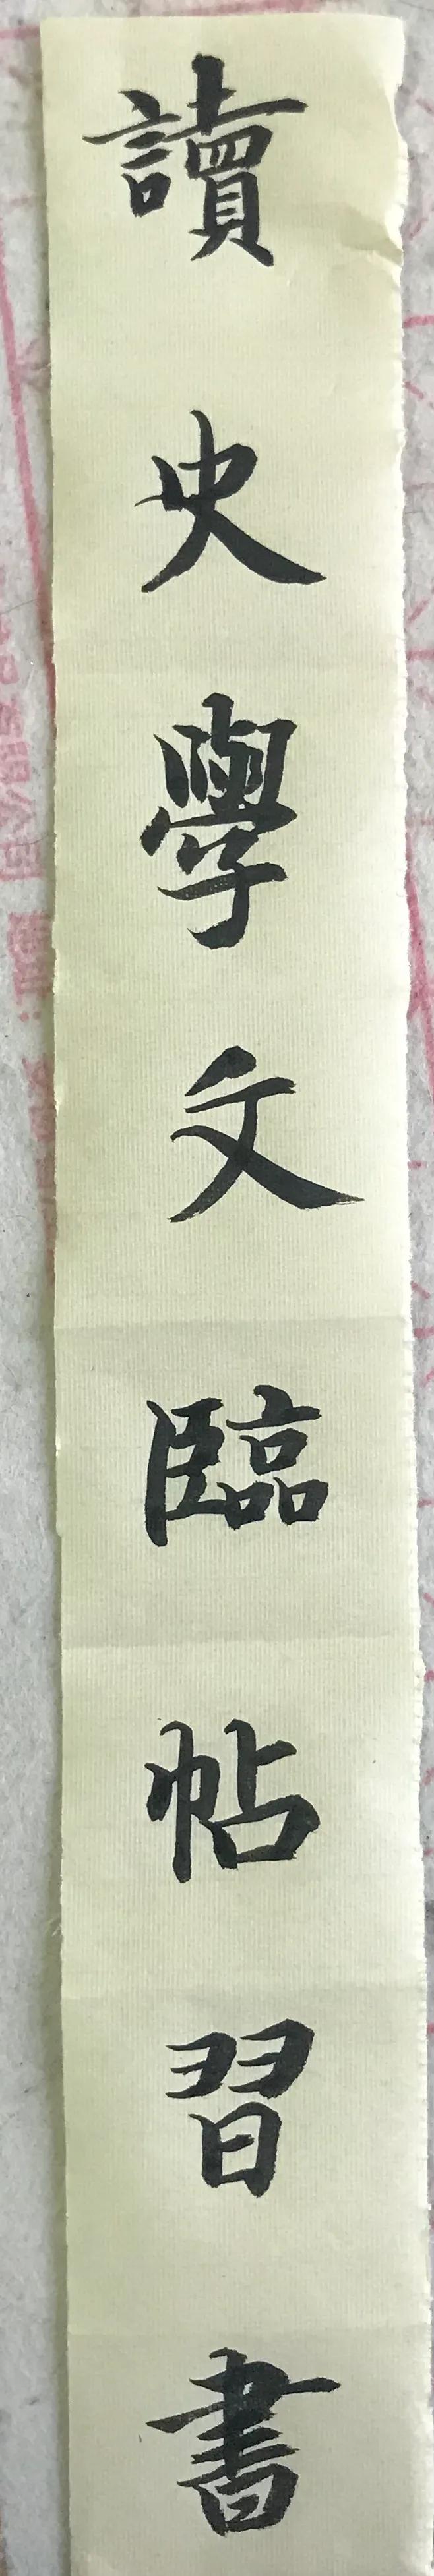 讀史學文臨帖習書